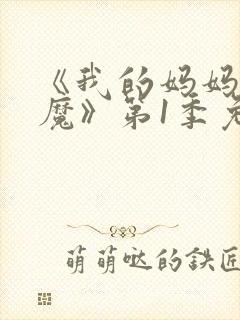 《我的妈妈
魔》第1季免
萌萌哒的鉄匠